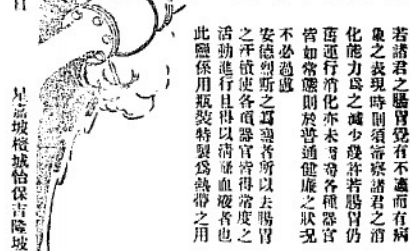 若諸君之腸胃覺有不適而有病
象之表現時則須審察諸君之消
化能力爲之減少幾許若腸胃仍
舊運行消化亦未有奇各種器官
皆如常態則於普通健康之狀況
不必過慮
安德烈斯之爲藥者所以去腸胃
之汙積使各項器官皆得常度之
活動進行且得以淸血液者也
此鹽係用瓶裝特製爲熱帶之用
星嘉坡檳城怡保吉隆坡